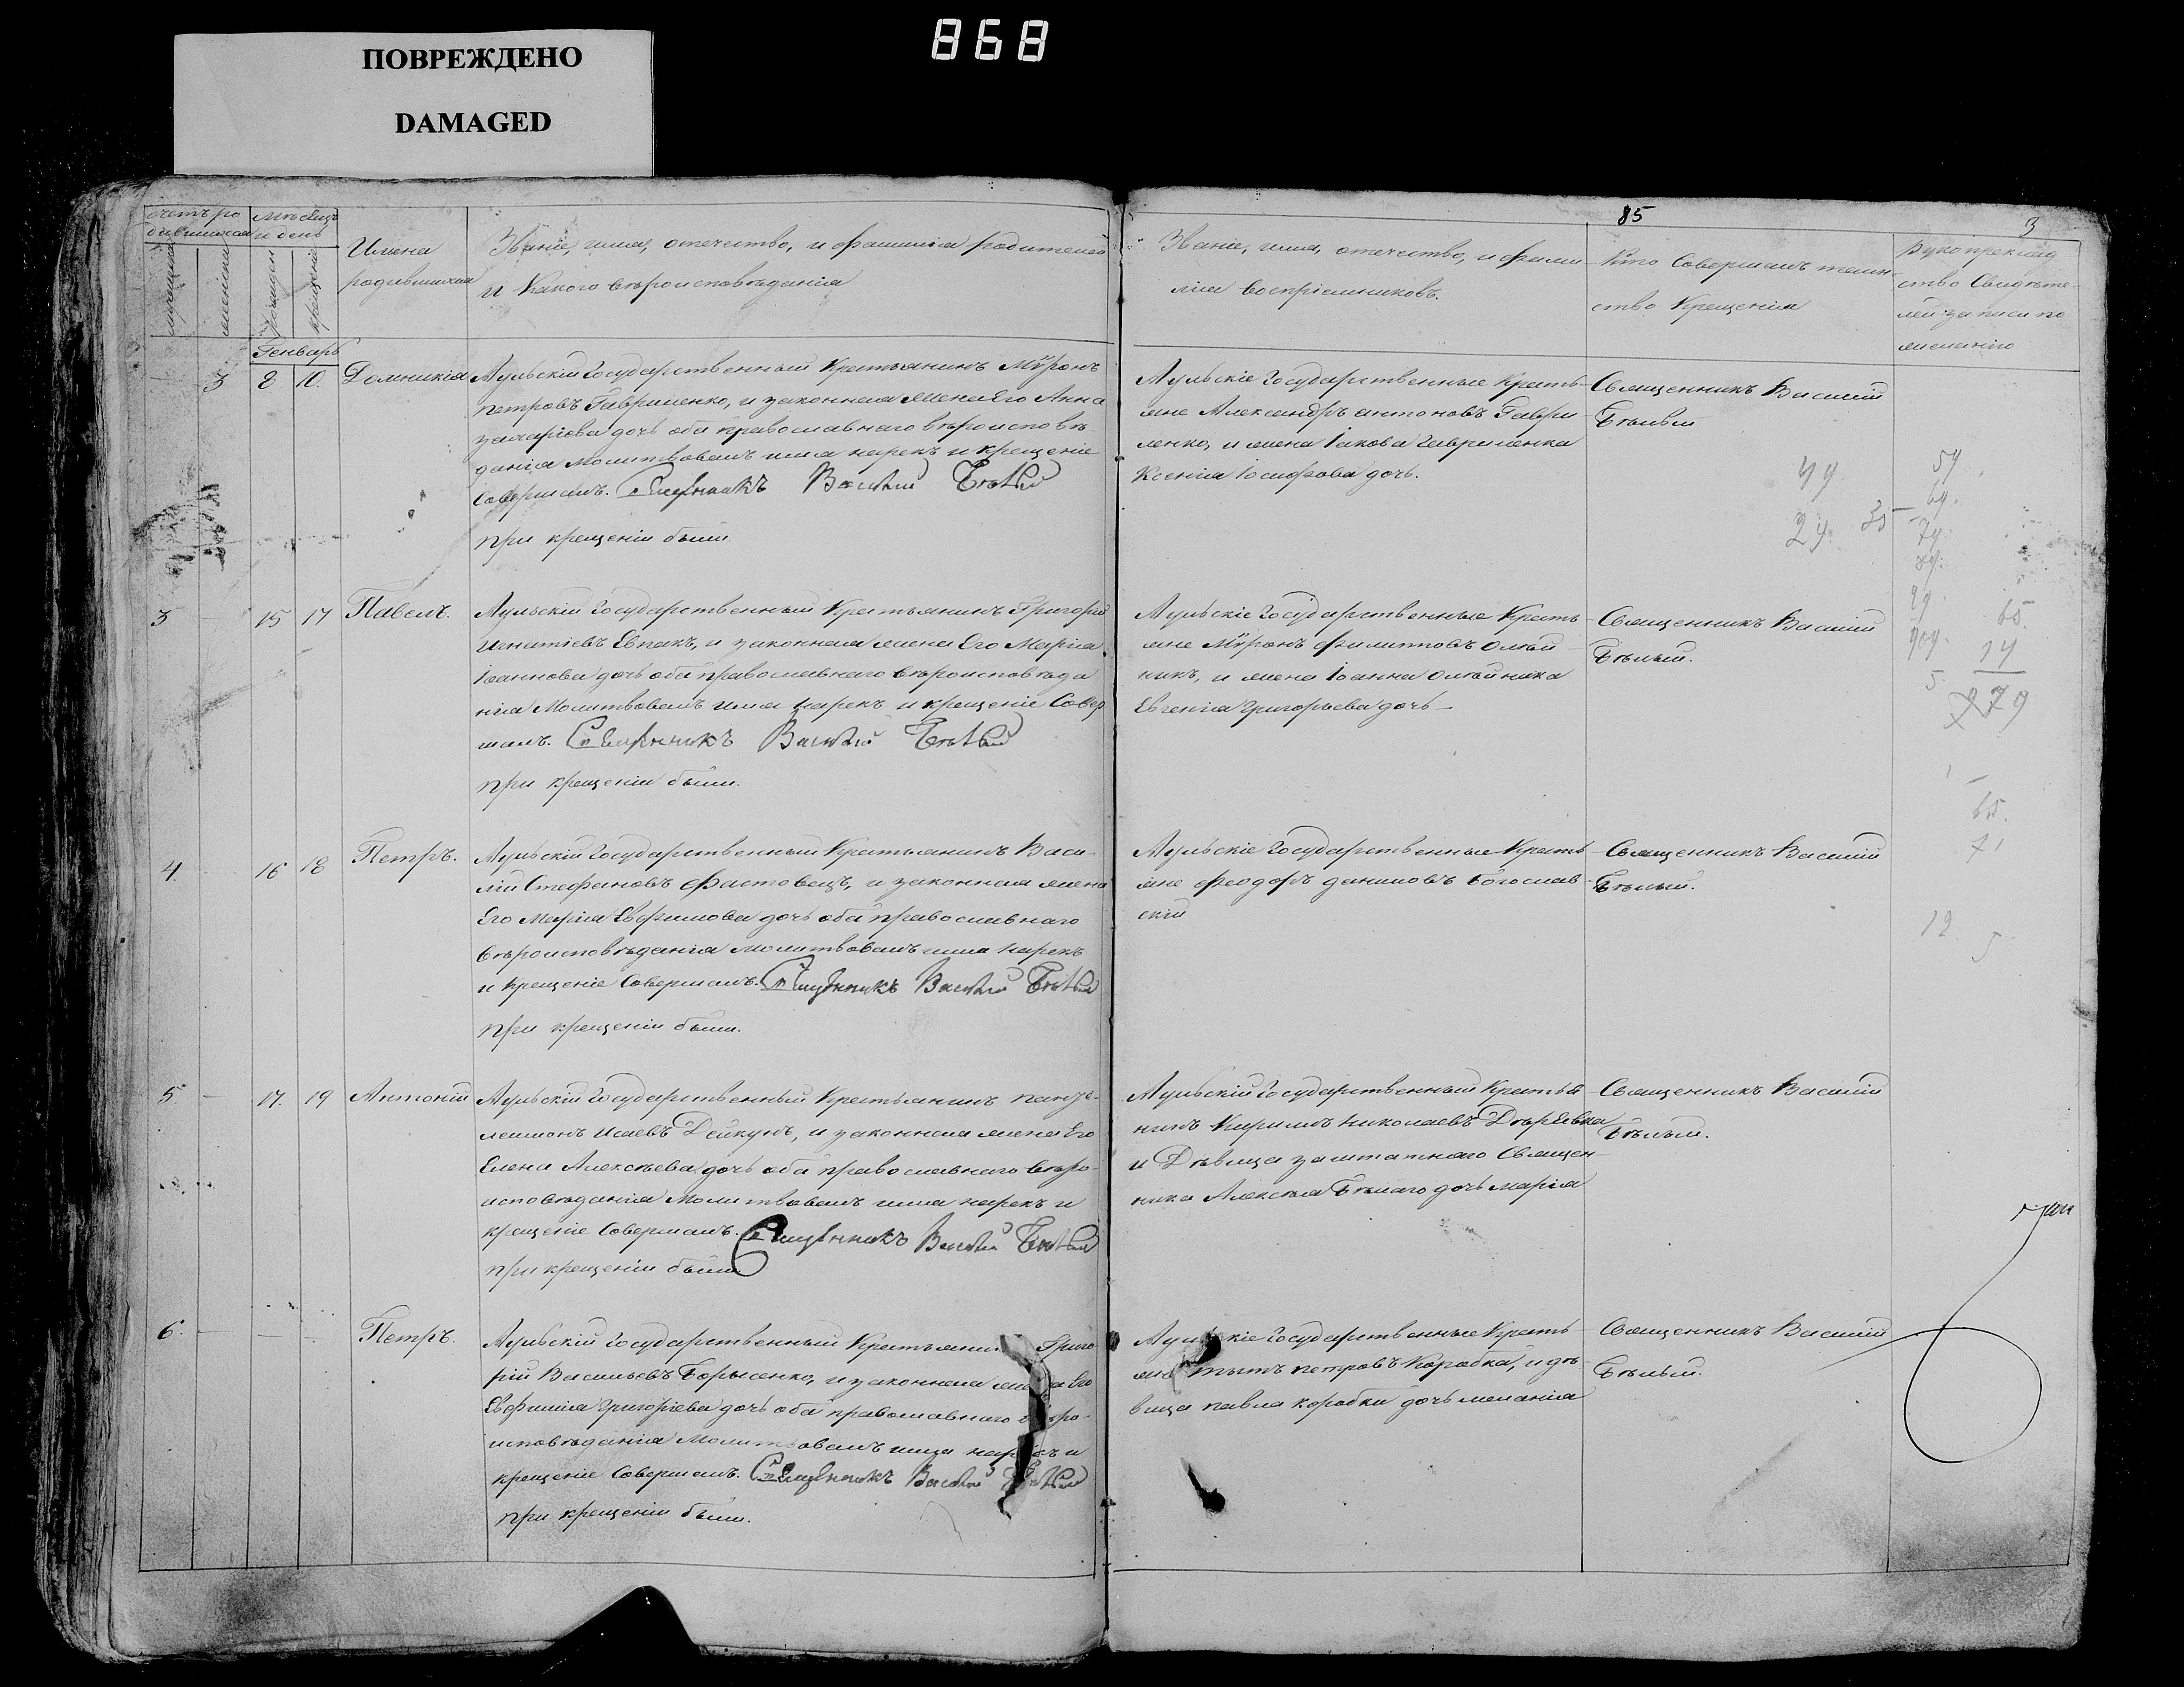 868
ПОВРЕЖДЕНО
DAMAGED
85
3
Счетъ родившихся
Мѣсяцъ и день
мужеска
женска
рожден
крещенія
Имена
родившихся
Званіе, имя, отечество, и фамилія родителей
и Какого вѣроисповѣданія
Званіе, имя, отечество, и фами
лія воспріемниковъ.
Кто Совершалъ таин
ство Крещенія
Рукоприклад
ство Свидѣте
лей записи по
желанію
Генварь
3 8 10. Домникія
Аульскій Государственный Крестьянинъ Мѵронъ
петровъ Гавриленко, и законная жена Его Анна
захаріева дочь оба православнаго вѣроисповѣ
данія Молитвовалъ имя нарекъ и крещеніе
Совершалъ. Священникъ Василій Бѣлый
при крещеніи были.
Аульскіе Государственные Кресть
яне Александръ антоновъ Гаври
ленко, и жена Іакова Гавриленка
Ксенія Іосифова дочь.
Священникъ Василій
Бѣлый
3 15 17 Павелъ.
Аульскій Государственный Крестьянинъ Григорій
Игнатіевъ Евпакъ, и законная жена Его Марія
Іоаннова дочь оба православнаго вѣроисповѣда
нія Молитвовалъ имя нарекъ и крещеніе Совер
шалъ. Священникъ Василій Бѣлый
при крещеніи были.
Аульскіе Государственные Кресть
яне Мѵронъ филипповъ Олѣй
никъ, и жена Іоанна Олѣйника
Евгенія Григорьева дочь
Священникъ Василій
Бѣлый.
4 16 18 Петръ.
Аульскій Государственный Крестьянинъ Васи
лій Стефановъ Фастовецъ, и законная жена
Его Марія Евфимова дочь оба православнаго
вѣроисповѣданія Молитвовалъ имя Нарекъ
и крещеніе Совершалъ. Священникъ Василій Бѣлый
при крещеніи были.
Аульскіе Государственные Кресть
яне Феодоръ даниловъ Богослав
скій
Священникъ Василій
Бѣлый.
5 17. 19 Антоній
Аульскій Государственный Крестьянинъ панте
леимонъ Исаевъ Дейкунъ, и законная жена Его
Елена Алексѣева дочь оба православнаго вѣро
исповѣданія Молитвовалъ имя нарекъ и
крещеніе Совершалъ. Священникъ Василій Бѣлый
при крещеніи были
Аульскій Государственный Крестья
нинъ Кирилъ Николаевъ
и Дѣвица заштатнаго Священ
ника Алексѣя Бѣлаго дочь Марія
Священникъ Василій
Бѣлый.
6. Петръ.
Аульскій Государственный Григо
рій Васильевъ Борысенко, и законная жена Его
Евфимія Григоріева дочь оба православнаго вѣро
исповѣданія Молитвовалъ имя нарекъ и
крещеніе Совершалъ. Священникъ Василій Бѣлый
при крещеніи были.
Аульскіе Государственные Кресть
яне петровъ Коробка, и дѣ
вица павла коробки дочь меланія
Священникъ Василій
Бѣлый.